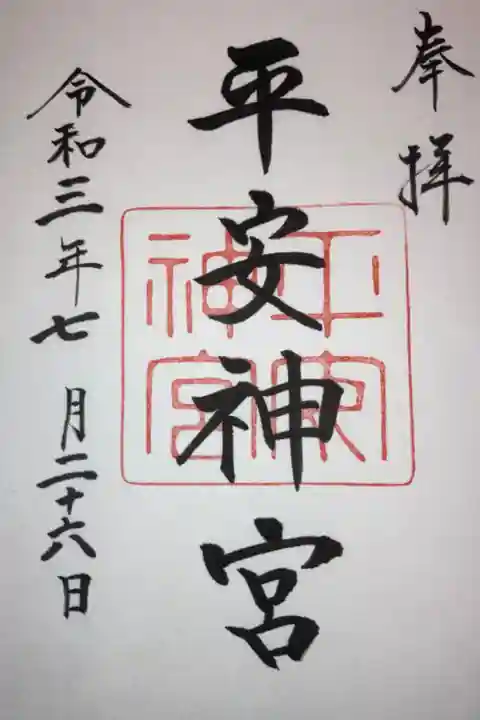 奉拝
平安神宮
令和三年七月二十六日
平安神宮